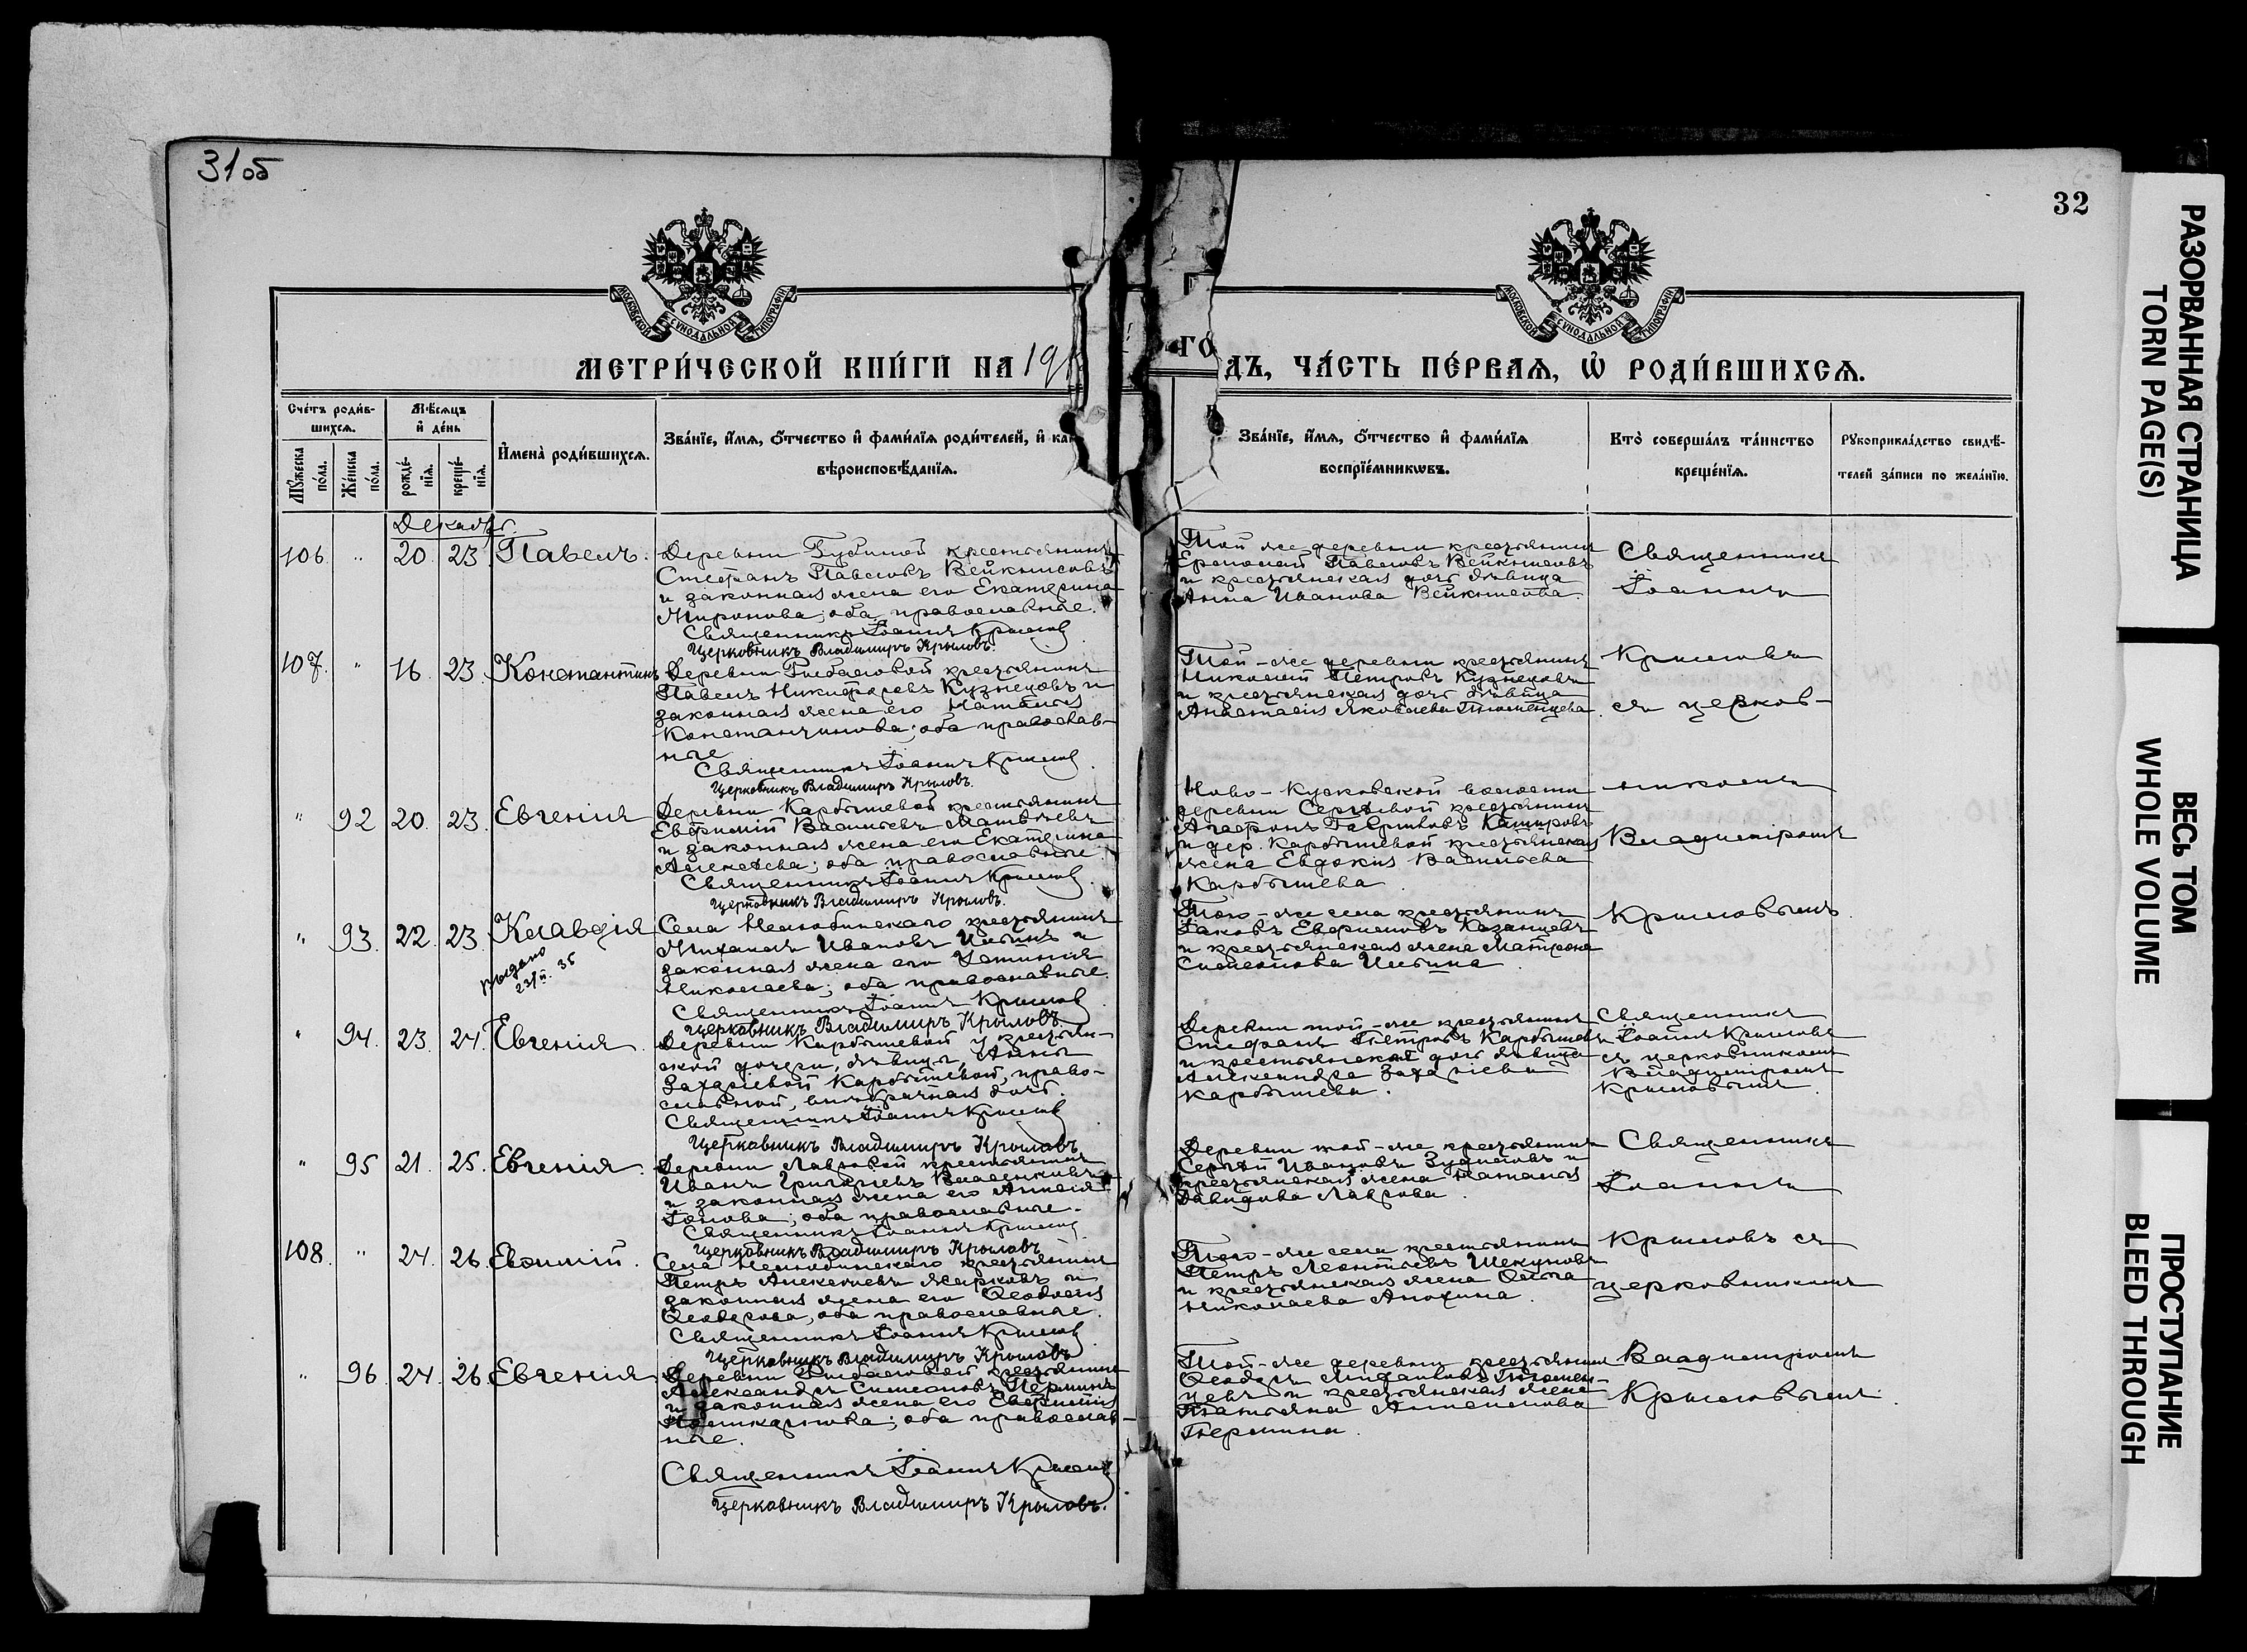 31об
32
МОСКОВСКОЙ СУНОДАЛЬНОЙ ТИПОГРАФІИ
МОСКОВСКОЙ СУНОДАЛЬНОЙ ТИПОГРАФІИ
МЕТРИ́ЧЕСКОЙ КНИ́ГИ НА 19
ГО
ДЪ, ЧА́СТЬ ПЕ́РВАѦ, Ѡ РОДИ́ВШИХСѦ.
Сче́тъ роди́в-
шихсѧ.
Мꙋ́жеска по́ла.
Же́нска по́ла.
Мѣ́сѧцъ
и҆ де́нь
рожде́-
нїѧ.
креще́-
нїѧ.
И҆мена̀ роди́вшихсѧ.
Зва́нїе, и҆́мѧ, ѻ҆́тчество и҆ фами́лїѧ роди́телей, и҆ как
вѣроисповѣ́данїѧ.
Зва́нїе, и҆́мѧ, ѻ҆́тчество и҆ фами́лїѧ
воспрїе́мникѡвъ.
Кто̀ соверша́лъ та́инство
креще́нїѧ.
Рꙋкоприкла́дство свидѣ́-
телей за́писи по жела́нїю.
Декабрь.
106. " 20. 23. Павелъ.
Деревни Губиной крестьянинъ
Стефанъ Павловъ Вейкшисовъ
и законная жена его Екатерина
Миронова; оба православные.
Священникъ Іоаннъ Крыловъ
Церковникъ Владимиръ Крыловъ.
Той же деревни крестьянинъ
Ермолай Павловъ
и крестьянская дочь дѣвица
Анна Иванова
Священникъ
Іоаннъ
107. " 16. 23. Константинъ
Деревни Рыбаловой крестьянинъ
Павелъ Никифоровъ Кузнецовъ и
законная жена его Наталья
Константинова; оба православ-
ные
Священникъ Іоаннъ Крыловъ.
Церковникъ Владимиръ Крыловъ.
Той-же деревни крестьянинъ
Николай Петровъ Кузнецовъ
и крестьянская дочь дѣвица
Анастасія Яковлева Тюменцева.
Крыловъ
съ церков-
" 92 20. 23. Евгенія
Деревни Карбышевой крестьянинъ
Евфимій Васильевъ Матвѣевъ
и законная жена его Екатерина
Алексѣева; оба православные.
Священникъ Іоаннъ Крыловъ.
Церковникъ Владимиръ Крыловъ.
Ново-Кусковской волости
деревни Сергѣевой крестьянинъ
Агафонъ Гавриловъ Кашировъ
и дер. Карбышевой крестьянская
жена Евдокія Васильева
Карбышева.
никомъ
Владиміромъ
" 93. 22. 23. Клавдія
Выдано
23/II. 35
Села Нелюбинскаго крестьянинъ
Михаилъ Ивановъ Ильинъ и
законная жена его Устинія
Николаева; оба православные.
Священникъ Іоаннъ Крыловъ.
Церковникъ Владимиръ Крыловъ.
Того-же села крестьянинъ
Іаковъ Евфимовъ Казанцевъ
и крестьянская жена Матрона
Симеонова Ильина.
Крыловымъ.
" 94. 23. 24. Евгенія.
Деревни Карбышевой у крестьян-
ской дочери, дѣвицы, Анны
Захаріевой Карбышевой, право-
славной, внѣбрачная дочь.
Священникъ Іоаннъ Крыловъ
Церковникъ Владимиръ Крыловъ
Деревни той-же крестьянинъ
Стефанъ Петровъ Карбышевъ
и крестьянская дочь дѣвица
Александра Захаріева
Карбышева.
Священникъ
Іоаннъ Крыловъ
съ церковникомъ
Владиміромъ
Крыловымъ.
" 95 21. 25. Евгенія.
Деревни Лавровой крестьянинъ
Иванъ Григорьевъ
и законная жена его Анисія
Іонова; оба православные.
Священникъ Іоаннъ Крыловъ
Церковникъ Владимиръ Крыловъ
Деревни той-же крестьянинъ
Сергѣй Ивановъ Зудиловъ и
крестьянская жена Наталья
Давидова Лаврова.
Священникъ
Іоаннъ
108. " 24. 26. Евѳимій.
Села Нелюбинскаго крестьянинъ
Петръ Алексѣевъ Жарковъ и
законная жена его Ѳеодосія
Ѳеодорова, оба православные.
Священникъ Іоаннъ Крыловъ
Церковникъ Владимиръ Крыловъ
Того-же села крестьянинъ
Петръ Леонтьевъ Шекуновъ
и крестьянская жена Ольга
Николаева Анохина.
Крыловъ съ
церковникомъ
" 96. 24. 26. Евгенія
Деревни Рыбаловой крестьянинъ
Александръ Симеоновъ Перминъ
и законная жена его Евфимія
Поликарпова; оба православ-
ные.
Священникъ Іоаннъ Крыловъ
Церковникъ Владимиръ Крыловъ.
Той-же деревни крестьянинъ
Ѳеодоръ Михаиловъ Тюмен-
цевъ и крестьянская жена
Татьяна
Пермина.
Владиміромъ
Крыловымъ.
РАЗОРВАННАЯ СТРАНИЦА
TORN PAGE(S)
ВЕСЬ ТОМ
WHOLE VOLUME
ПРОСТУПАНИЕ
BLEED THROUGH